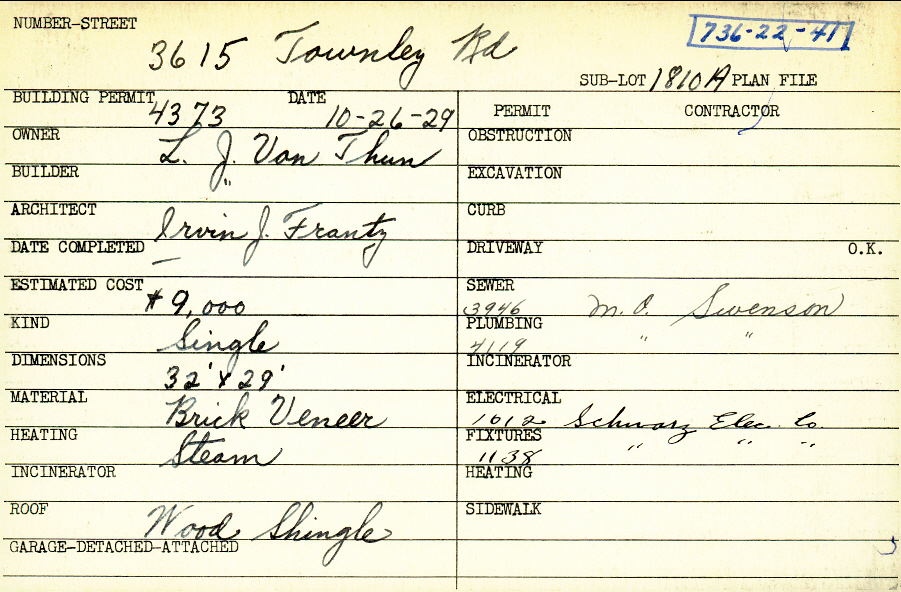 NUMBER-STREET
3615 Townley Rd
736-22-41
SUB-LOT 1810A PLAN FILE
BUILDING PERMIT 4373 DATE 10-26-29
PERMIT CONTRACTOR
OWNER L. J. Van Thun
OBSTRUCTION
BUILDER "
EXCAVATION
ARCHITECT Irvin J. Frantz
CURB
DATE COMPLETED —
DRIVEWAY O.K.
ESTIMATED COST $9,000
SEWER 3946 M. O. Swenson
KIND Single
PLUMBING 4119 " "
DIMENSIONS 32' x 29'
INCINERATOR
MATERIAL Brick Veneer
ELECTRICAL 1012 Schwarz Elec. Co
HEATING Steam
FIXTURES 1138 " " "
INCINERATOR
HEATING
ROOF Wood Shingle
SIDEWALK
GARAGE-DETACHED-ATTACHED